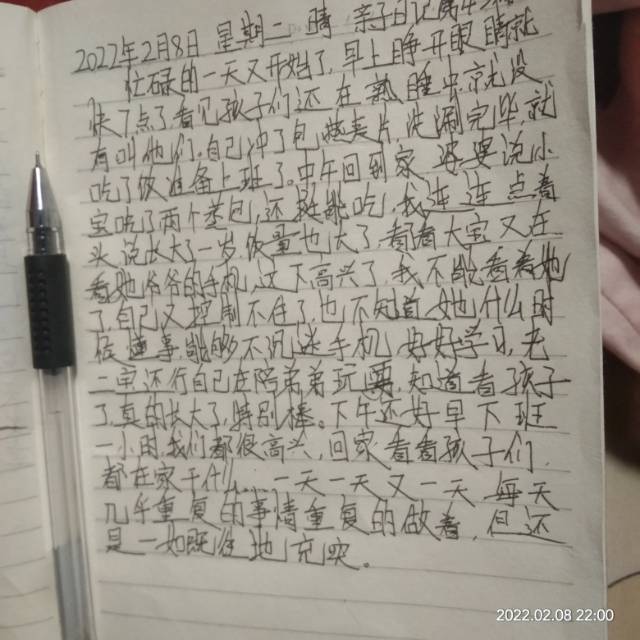 2022年2月8日 星期二 晴 亲子日记
忙碌的一天又开始了,早上睁开眼睛就
快7点了看见孩子们还在熟睡中就没
有叫他们,自己冲了包燕麦片洗漱完毕就
吃了饭准备上班了。中午回到家,婆婆说小
宝吃了两个菜包,还挺能吃,我连连点着
头,说长大了一岁饭量也大了,看看大宝又在
看她爷爷的手机,这下高兴了我不能看着她
了,自己又控制不住了,也不知道她什么时
候懂事,能够不沉迷手机,好好学习,光
二宝还行自己在陪弟弟玩耍,知道看孩子
了,真的长大了,特别棒。下午还好早下班
一小时,我们都很高兴,回家看看孩子们,
都在家干什么...一天一天又一天 每天
几乎重复的事情重复的做着,但还
是一如既往地充实。
2022.02.08 22:00